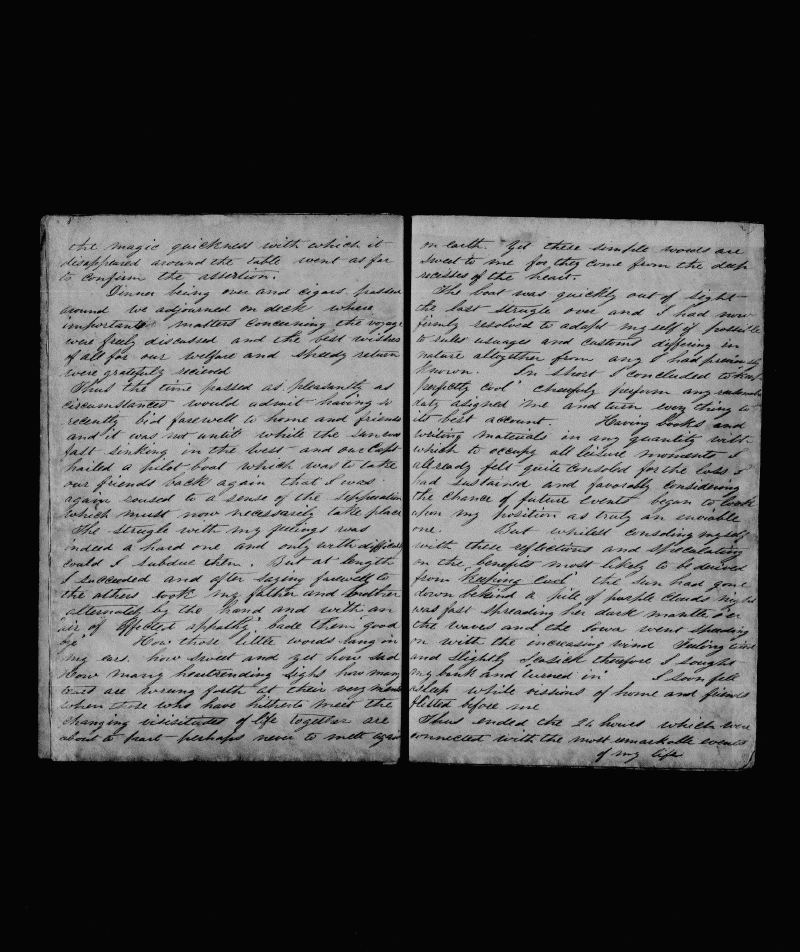 the magic quickness with which it
disappeared around the table went as far
to confirm the assertion.
Dinner being over and cigars passed
around we adjourned on deck where
important matters concerning the voyage
were freely discussed and the best wishes
of all for our welfare and speedy return
were gratefully recieved
Thus the time passed as pleasantly as
circumstances would admit having so
recently bid farewell to home and friends
and it was not until while the sun was
fast sinking in the west and our Capt
hailed a pilot boat which was to take
our friends back again that I was
again roused to a sense of the seperation
which must now necessarily take place
The strugle with my feelings was
indeed a hard one and only with difficulty
could I subdue them. But at length
I succeeded and after saying farewell to
the others took my father and brother
alternately by the hand and with an
"air of affected appathy" bade them "good
bye" How those little words rang in
my ears. how sweet and yet how sad
How many heartrending sighs how many
tears are wrung forth at their very
when those who have hitherto meet the
changing visisitudes of life together are
about to part perhaps never to meet again
on earth. Yet these simple words are
sweet to me for they come from the deep
recesses of the heart.
The boat was quickly out of sight
the last strugle over and I had now
firmly resolved to adapt myself if possible
to rules usuages and customs differing in
nature altogther from any I had previously
known. In short I concluded to "keep
perfectly cool" chearfuly preform any
duty asigned me and turn every thing to
its best account. Having books and
writing materials in any quantity with
which to occupy all leisure moments I
allready felt quite consoled for the loss I
had sustained and favorably considering
the chance of future events began to look
upon my position as truly an enviable
one. But whilest consoling myself
with these reflections and speculating
on the benefits most likely to be derived
from "Keeping Cool" the sun had gone
down behind a pile of purple clouds night
was fast spreading her dark mantle o'er
the waves and the Iowa went speeding
on with the increasing wind Feeling tired
and slightly seasick therefore I sought
my bunk and "turned in" I soon fell
asleep while vissions of home and friends
flitted before me
Thus ended the 24 hours which were
connected with the most remarkable events
of my life